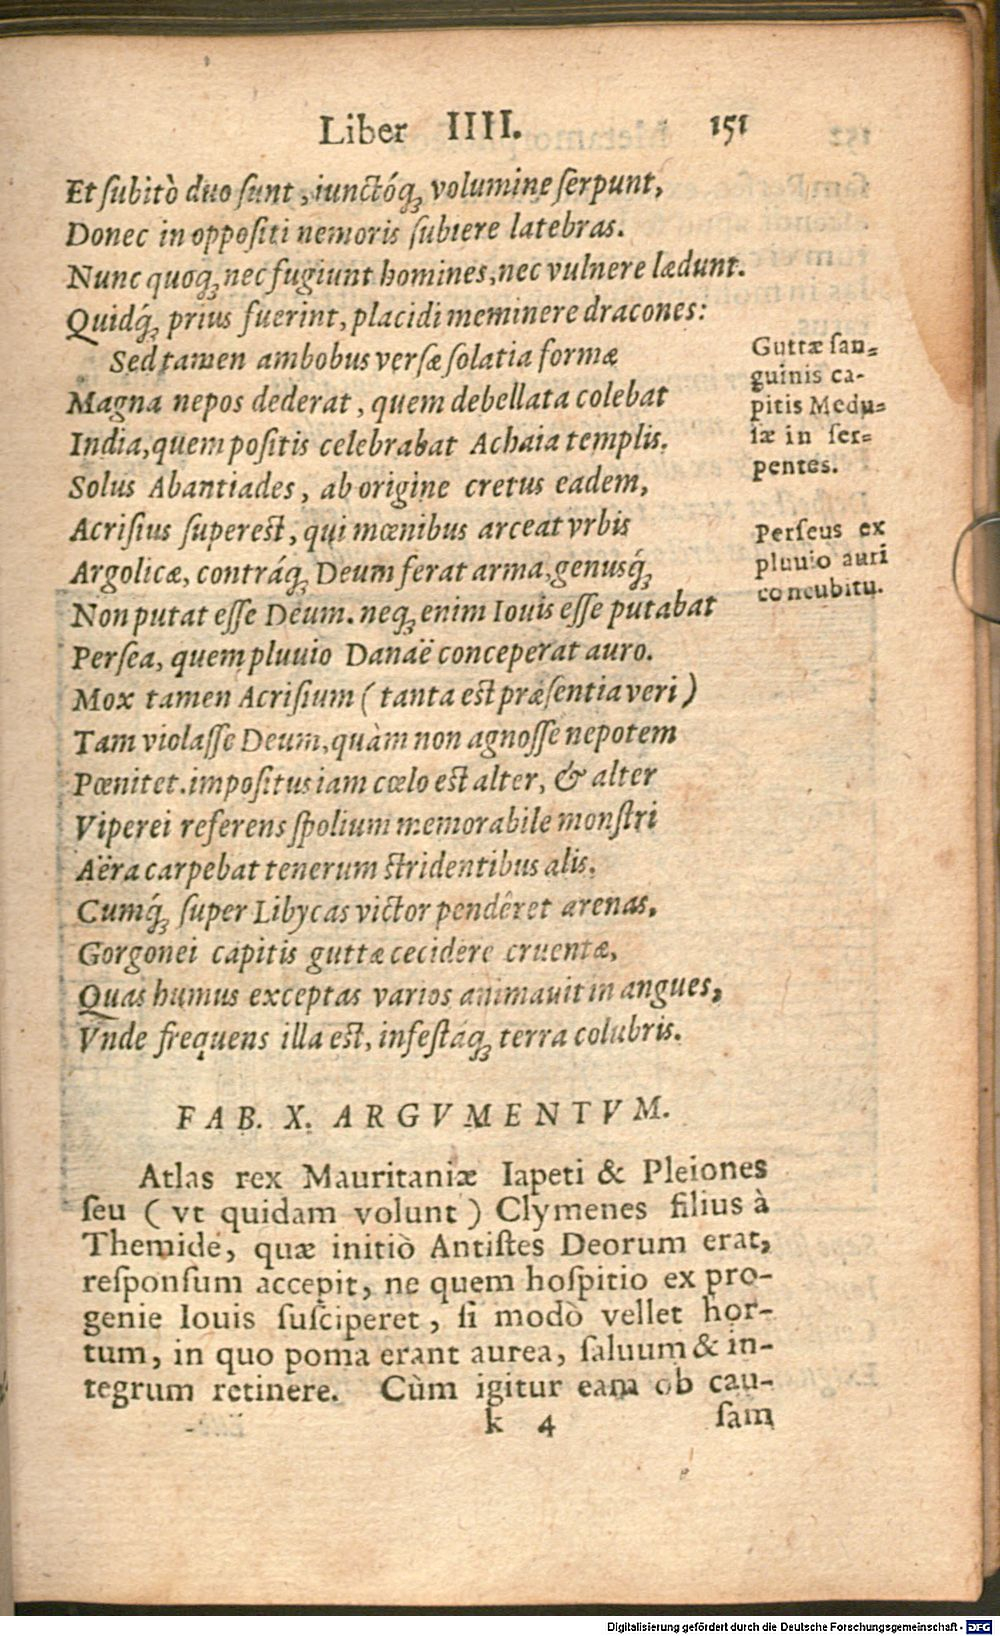 Liber IIII. 151
Et ſubitò duo ſunt, iunctóq́ꝫ volumine ſerpunt,
Donec in oppoſiti nemoris ſubiere latebras.
Nunc quoqꝫ nec fugiunt homines, nec vulnere lædunt.
Quidq́ꝫ prius fuerint, placidi meminere dracones:
Sed tamen ambobus verſæ ſolatia formæ
Magna nepos dederat, quem debellata colebat
India, quem poſitis celebrabat Achaia templis.
Solus Abantiades, ab origine cretus eadem,
Acriſius ſupereſt, qui mœnibus arceat vrbis
Argolicæ, contráq́ꝫ Deum ferat arma, genusq́ꝫ
Non putat eſſe Deum. neqꝫ enim Iouis eſſe putabat
Perſea, quem pluuio Danaë conceperat auro.
Mox tamen Acriſium (tanta eſt præſentia veri)
Tam violaſſe Deum, quàm non agnoſſe nepotem
Pœnitet. impoſitus iam cœlo eſt alter, & alter
Viperei referens ſpolium memorabile monſtri
Aëra carpebat tenerum ſtridentibus alis.
Cumq́ꝫ ſuper Libycas victor pendêret arenas,
Gorgonei capitis guttæ cecidere cruentæ,
Quas humus exceptas varios animauit in angues,
Vnde frequens illa eſt, infeſtáqꝫ terra colubris.
Guttæ ſan-
guinis ca-
pitis Medu-
ſæ in ſer-
pentes.
Perſeus ex
pluuio auri
concubitu.
FAB. X. ARGVMENTVM.
Atlas rex Mauritaniæ Iapeti & Pleiones
ſeu (vt quidam volunt) Clymenes filius à
Themide, quæ initiò Antiſtes Deorum erat,
reſponſum accepit, ne quem hoſpitio ex pro-
genie Iouis ſuſciperet, ſi modò vellet hor-
tum, in quo poma erant aurea, ſaluum & in-
tegrum retinere. Cùm igitur eam ob cau-
k 4 ſam
Digitalisierung gefördert durch die Deutsche Forschungsgemeinschaft - DFG